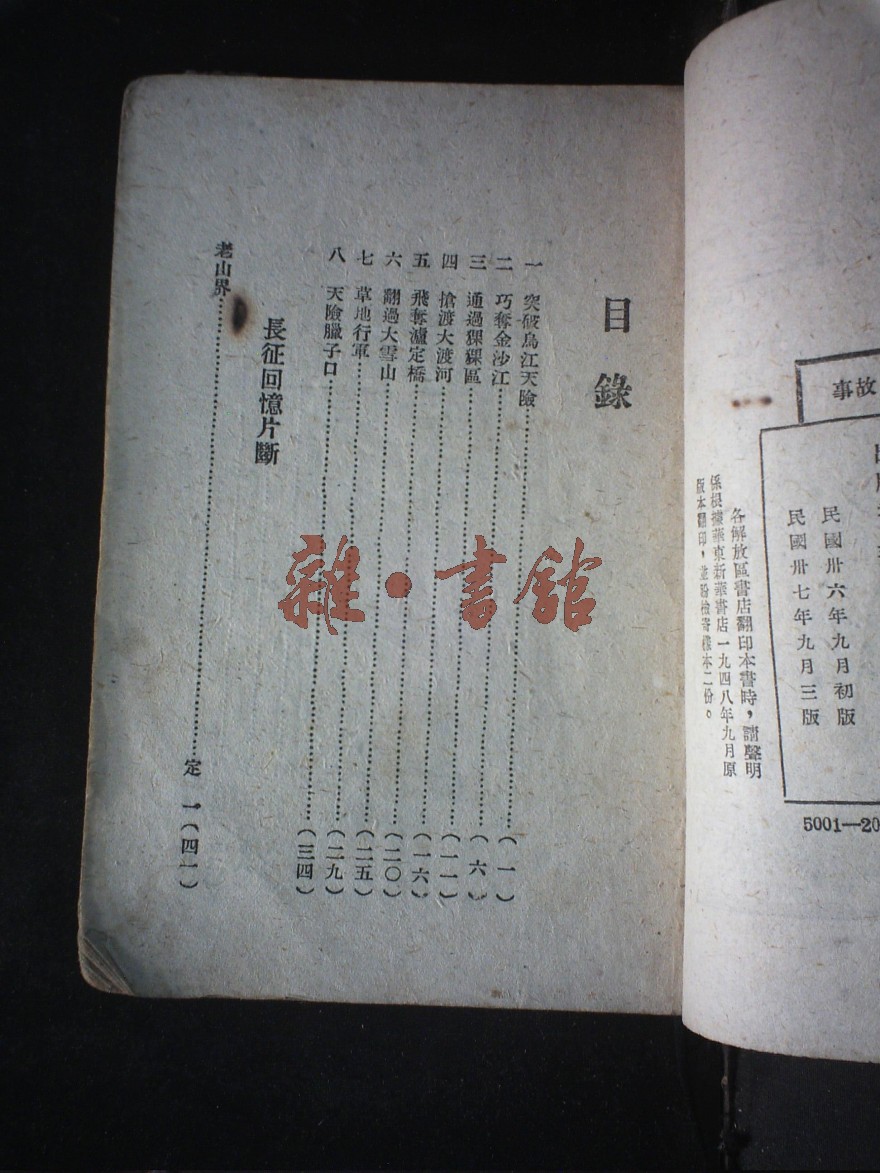 故事
民國卅六年九月初版
民國卅七年九月三版
5001—20
各解放區書店翻印本書時，請聲明
係根據華東新華書店一九四八年九月原
版本翻印，並盼檢寄樣本二份。
目錄
一 突破烏江天險……(一)
二 巧奪金沙江……(六)
三 通過猓猓區……(一一)
四 搶渡大渡河……(一六)
五 飛奪瀘定橋……(二〇)
六 翻過大雪山……(二五)
七 草地行軍……(二九)
八 天險臘子口……(三四)
長征回憶片斷
老山界……定一(四一)
雜·書館